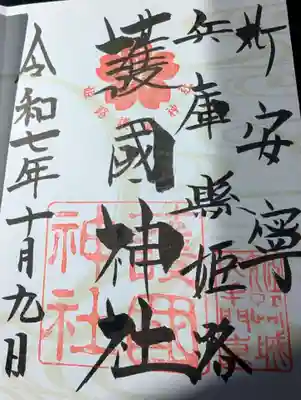 祈安寧
兵庫縣姫路
護國神社
令和七年十月九日
護國
神社